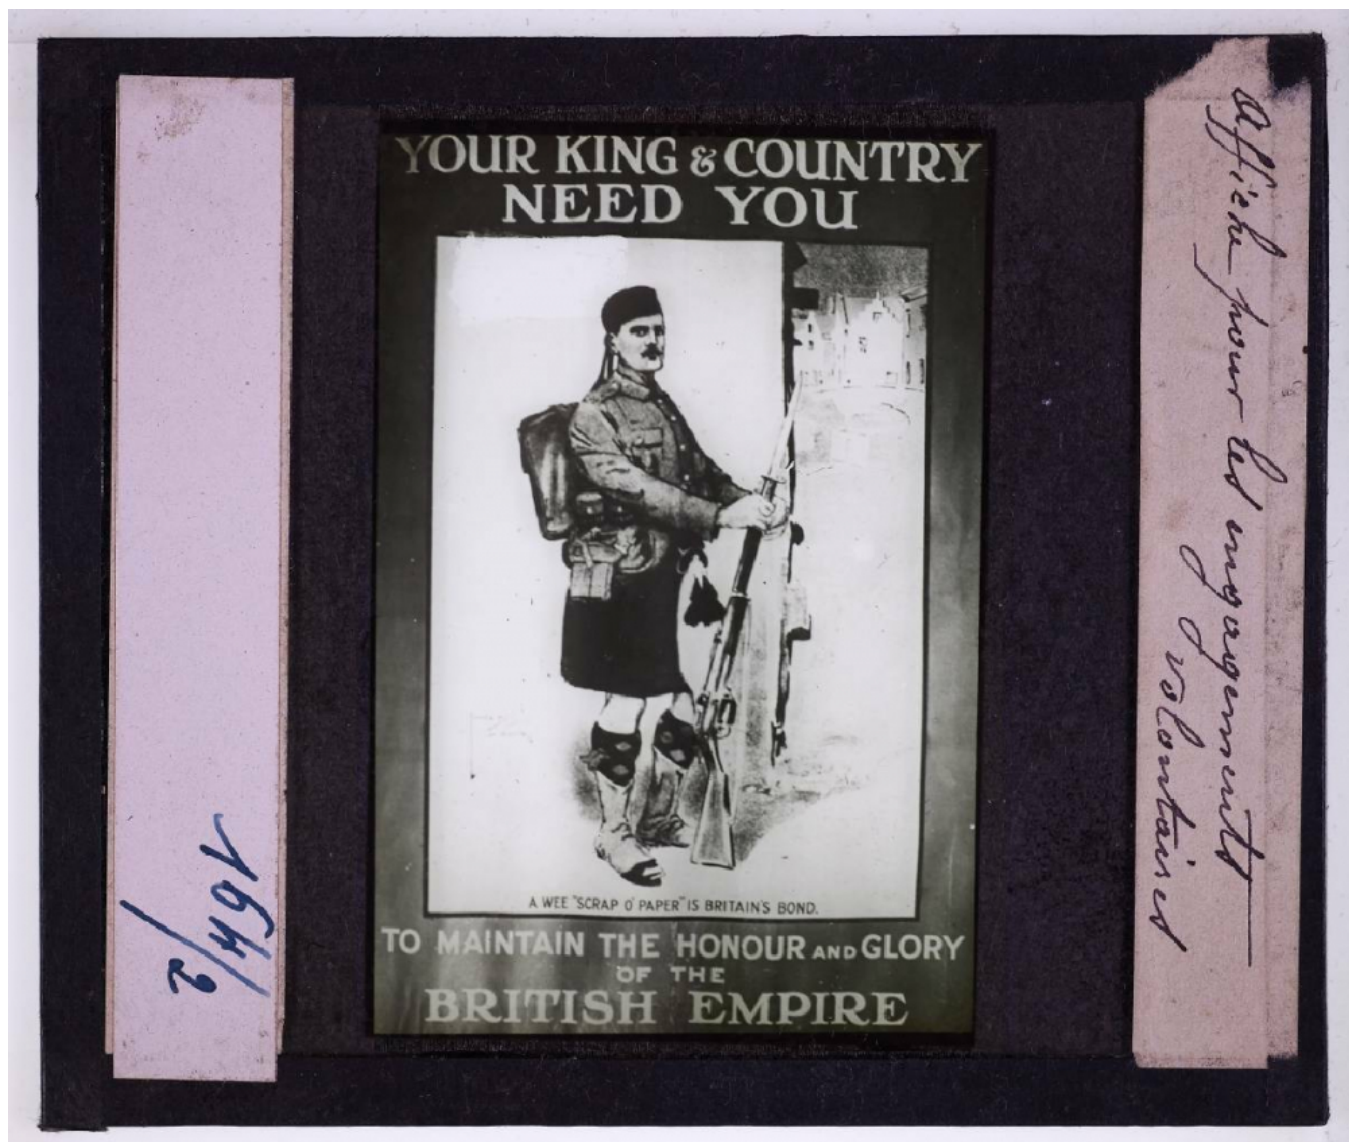 YOUR KING & COUNTRY
NEED YOU
A WEE "SCRAP O' PAPER" IS BRITAIN'S BOND.
TO MAINTAIN THE HONOUR AND GLORY
OF THE
BRITISH EMPIRE
Affiche pour les engagements
volontaires